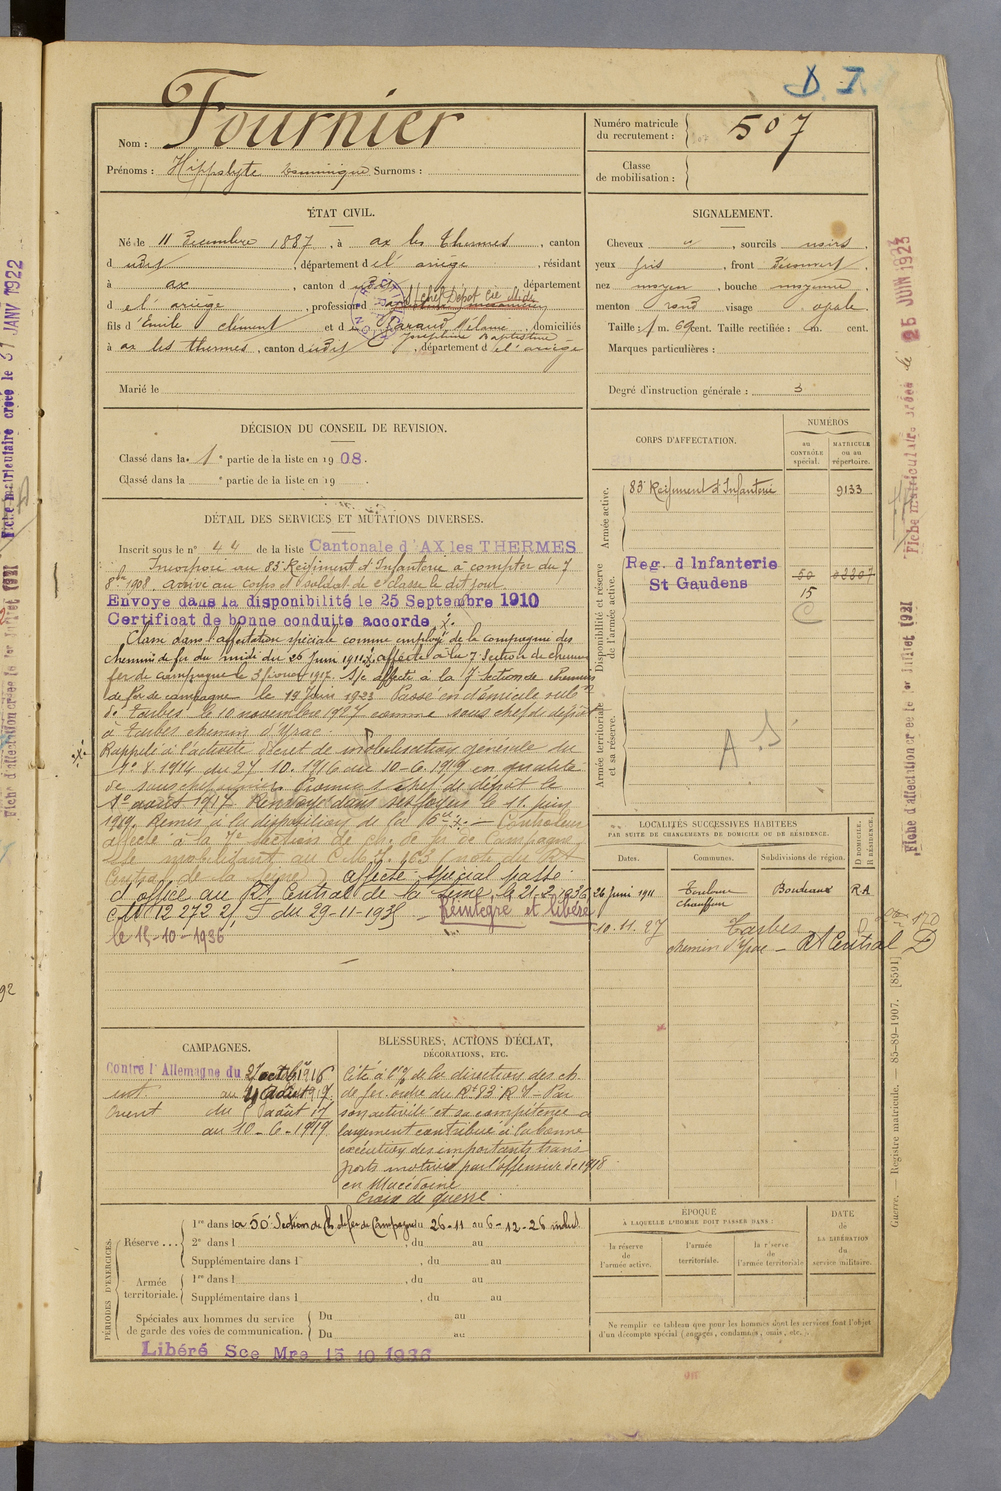 D. I.
Nom : Fournier
Prénoms : Hippolyte Dominique Surnoms :
Numéro matricule
du recrutement : 507
Classe
de mobilisation :
ÉTAT CIVIL.
Né le 11 Décembre 1887, à ax les thermes, canton
d udit, département de l' ariège, résidant
à ax, canton d udit, département
d e l' ariège, profession d S/chef Dépôt Cie Midi
fils d' Emile Clément et de Maraud Mélanie, domiciliés
Joséphine Baptistine
à ax les thermes, canton dudit, département d e l' ariège
Marié le
SIGNALEMENT.
Cheveux , sourcils noirs,
yeux gris, front Découvert,
nez moyen, bouche moyenne,
menton rond visage opale.
Taille : 1 m. 69 cent. Taille rectifiée : m. cent.
Marques particulières :
Degré d'instruction générale : 3
DÉCISION DU CONSEIL DE REVISION.
Classé dans la 1e partie de la liste en 1908.
Classé dans la e partie de la liste en 19 .
DÉTAIL DES SERVICES ET MUTATIONS DIVERSES.
Inscrit sous le n° 44 de la liste Cantonale d'AX les THERMES
Incorporé au 83e Régiment d'Infanterie à compter du 7
8bre 1908, arrivé au corps et soldat de 2e classe le dit jour
Envoye dans la disponibilité le 25 Septembre 1910
Certificat de bonne conduite accorde
Classé dans l'affectation spéciale comme employé de la compagnie des
chemins de fer du midi du 26 Juin 1911 affecté à la 7 Section de chemins
fer de campagne le 3 février 1917. S/c affecté à la 7 Section de chemins
de fer de campagne le 19 Juin 1923. Passé en domicile
de Tarbes le 10 novembre 1927 comme sous chef de dépôt
à tarbes chemin d'Yrac.
Rappelé à l'activité Décret de mobilisation générale du
1er 8. 1914 du 27 10. 1916 au 10-6-1919 en qualité
de sous chef Promu S/chef de dépôt le
1er août 1917 Renvoyé dans ses foyers le 11 juin
1919. Remis à la disposition de la
affecté à la 7e Section de ch. de fer de Campagne
mobilisant au C.M.I. 163 (note du Rt
Central de la Seine) affecté spécial passé
d'office au Rt Central de la Seine le 21-2-1936
CM 12 272 2/ du 29-11-1935 Réintégré et libéré
le 15-10-1936
CORPS D'AFFECTATION.
NUMÉROS
au
CONTRÔLE
spécial.
MATRICULE
ou au
répertoire.
Armée active.
83e Régiment d'Infanterie 9133
Disponibilité et réserve
de l'armée active.
Reg. d Infanterie
St Gaudens
50 03307
15
Armée territoriale
et sa réserve.
A S
LOCALITÉS SUCCESSIVES HABITÉES
PAR SUITE DE CHANGEMENTS DE DOMICILE OU DE RÉSIDENCE.
D DOMICILE.
R RÉSIDENCE.
Dates. Communes. Subdivisions de région.
26 Juin 1911 Toulouse Bordeaux RA
chauffeur
10. 11. 27 Tarbes D
chemin d'Yrac - Rt Central D
CAMPAGNES.
Contre l'Allemagne du 27 octobre 1916
int. au 4 août 1917.
Orient du 5 août 17
au 10-6-1919
BLESSURES, ACTIONS D'ÉCLAT,
DÉCORATIONS, ETC.
Cité à l'O/ de la direction des ch.
de fer. ordre du Rt 83 R Y - Par
son activité et sa compétence a
largement contribué à la bonne
exécution des importants trans
ports motivés par l'offensive de 1918
en Macédoine.
Croix de guerre.
PÉRIODES D'EXERCICES.
Réserve ... 1re dans la 50e Section de Ch. de fer de Campagne du 26-11 au 6-12-26 inclus
2e dans l , du au
Supplémentaire dans l , du au
Armée
territoriale. 1re dans l , du au
Supplémentaire dans l , du au
Spéciales aux hommes du service
de garde des voies de communication. Du au
Du au
Libéré Sce Mre 15 10 1936
ÉPOQUE
À LAQUELLE L'HOMME DOIT PASSER DANS :
la réserve
de
l'armée active.
l'armée
territoriale.
la réserve
de
l'armée territoriale
DATE
de
LA LIBÉRATION
du
service militaire.
Ne remplir ce tableau que pour les hommes dont les services font l'objet
d'un décompte spécial (engagés, condamnés, omis, etc.
Guerre. — Registre matricule. — 85-89-1907. [8591]
Fiche matriculaire créée le 25 JUIN 1923
Fiche d'affectation créée le 1er Juillet 1921
Fiche matriculaire créée le 31 JANV 1922
Fiche d'affectation créée le 1er Juillet 1921